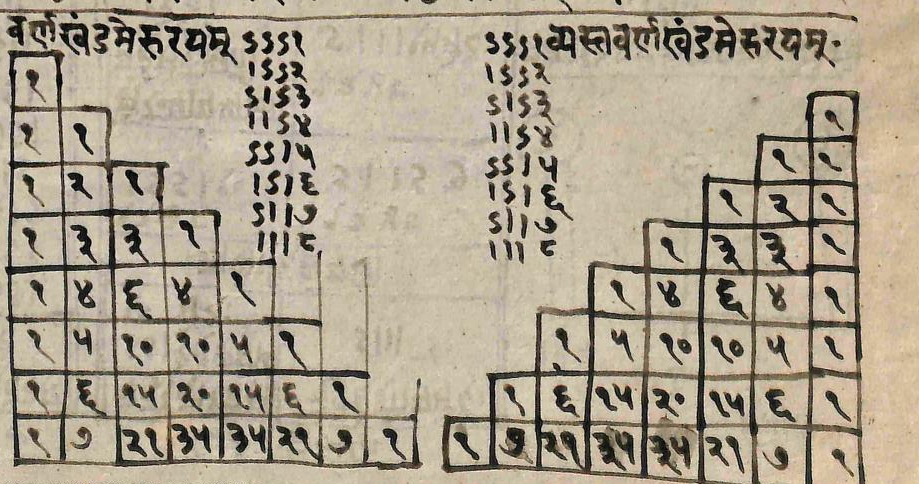 वर्णखंडमेरुरयम् ऽऽऽ१
।ऽऽ२
ऽ।ऽ३
।।ऽ४
ऽऽ।५
।ऽ।६
ऽ।।७
।।।८
१
१ १
१ २ १
१ ३ ३ १
१ ४ ६ ४ १
१ ५ १० १० ५ १
१ ६ १५ २० १५ ६ १
१ ७ २१ ३५ ३५ २१ ७ १
ऽऽऽ१ व्यस्तवर्णखंडमेरुरयम्
।ऽऽ२
ऽ।ऽ३
।।ऽ४
ऽऽ।५
।ऽ।६
ऽ।।७
।।।८
१
१ १
१ २ १
१ ३ ३ १
१ ४ ६ ४ १
१ ५ १० १० ५ १
१ ६ १५ २० १५ ६ १
१ ७ २१ ३५ ३५ २१ ७ १